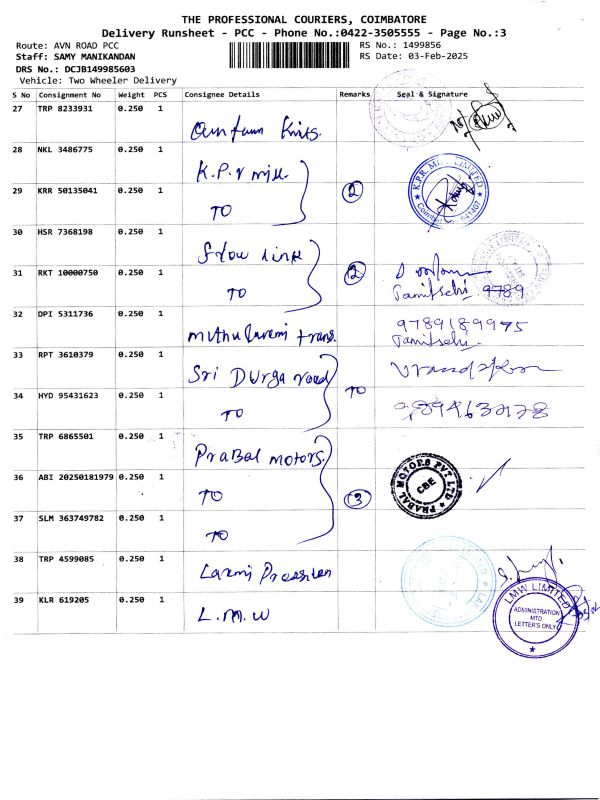 THE PROFESSIONAL COURIERS, COIMBATORE
Delivery Runsheet - PCC - Phone No.:0422-3505555 - Page No.:3
Route: AVN ROAD PCC
RS No.: 1499856
Staff: SAMY MANIKANDAN
RS Date: 03-Feb-2025
DRS No.: DCJB149985603
Vehicle: Two Wheeler Delivery
S No Consignment No Weight PCS Consignee Details Remarks Seal & Signature
27 TRP 8233931 0.250 1
28 NKL 3486775 0.250 1 K.P.R mill 2 K.P.R. MILL LIMITED
29 KRR 50135041 0.250 1 TO
30 HSR 7368198 0.250 1 flow link 2
31 RKT 10000750 0.250 1 TO Tamilselvi 9789
32 DPI 5311736 0.250 1 muthulaxmi trans. 9789189995 Tamilselvi
33 RPT 3610379 0.250 1 Sri Durga road
34 HYD 95431623 0.250 1 TO TO
35 TRP 6865501 0.250 1 PraBal motors. PRABAL MOTORS PVT LTD CBE
36 ABI 20250181979 0.250 1 TO 3
37 SLM 363749782 0.250 1 TO
38 TRP 4599085 0.250 1 Laxmi
39 KLR 619205 0.250 1 L.M.W LMW LIMITED
ADMINISTRATION
MTD
LETTER'S ONLY